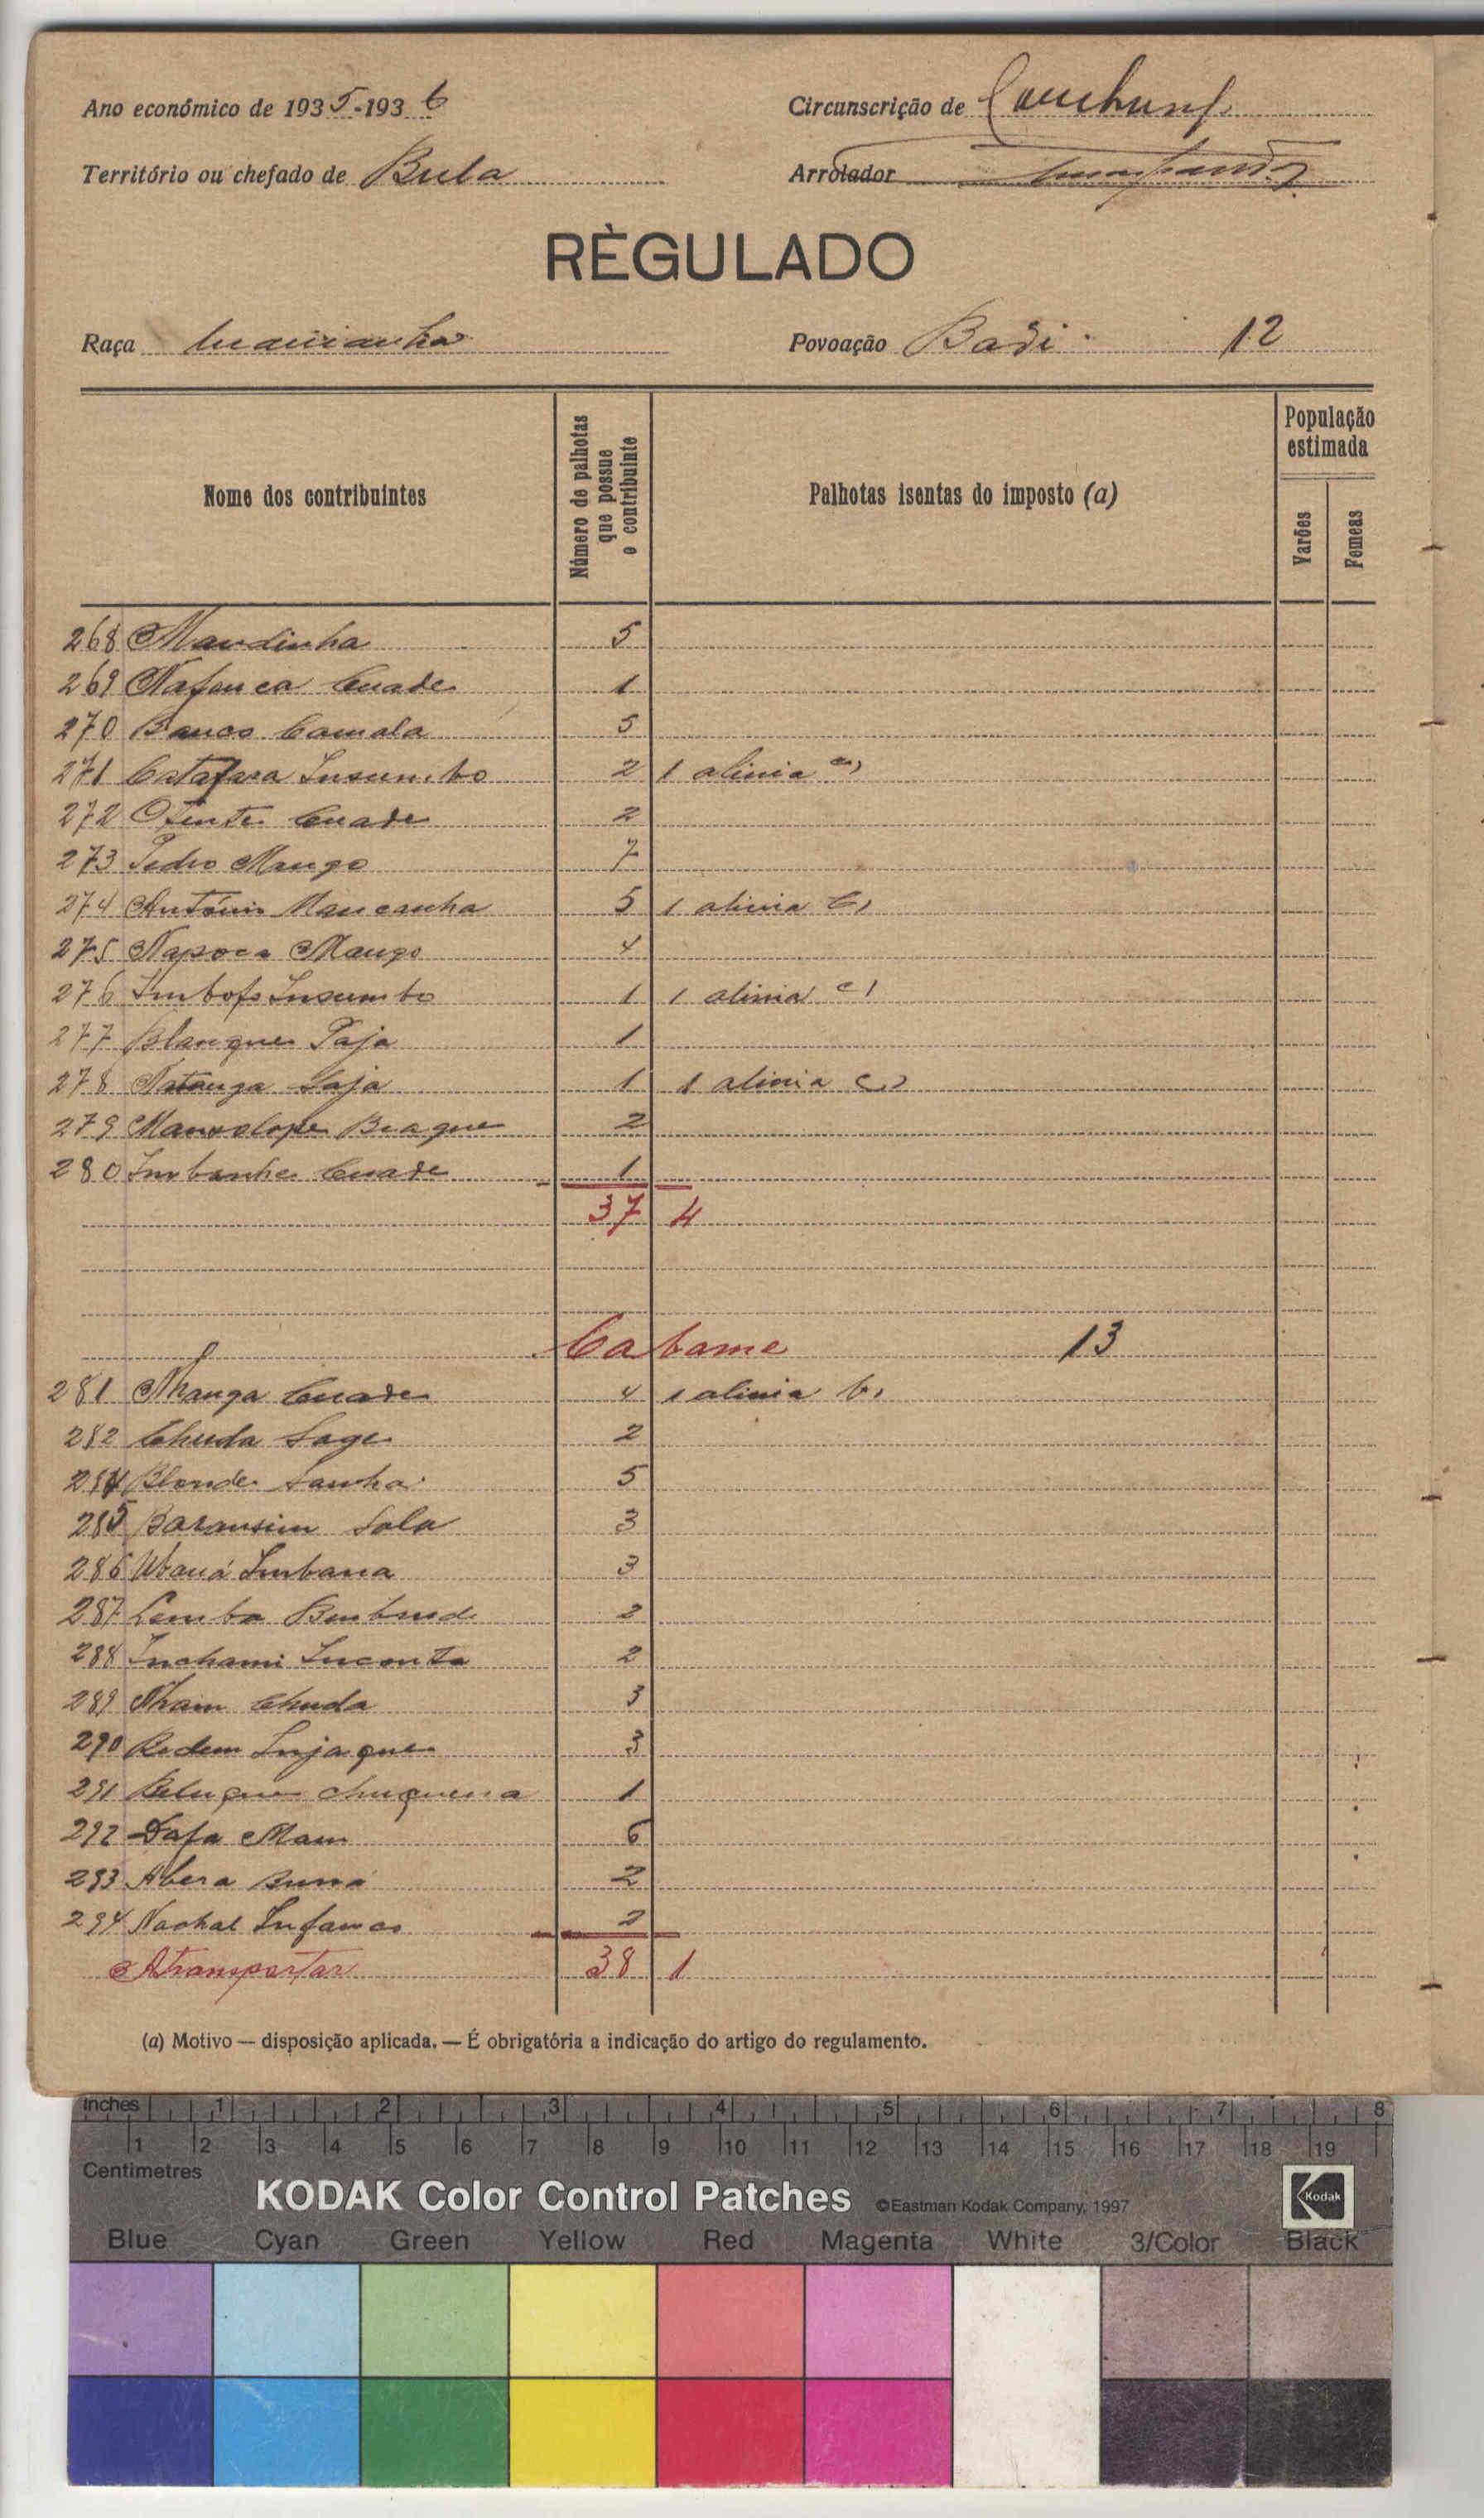 Ano económico de 1935-1936
Circunscrição de
Território ou chefado de Bula
Arrolador
RÈGULADO
Raça Mancanha
Povoação Badi 12
Nome dos contribuintes
Número de palhotas que possue o contribuinte
Palhotas isentas do imposto (a)
População estimada
Varões
Femeas
268 Mandinha 5
269 Nafanca Cuade 1
270 Banco Camala 5
271 Catafara Insumbo 2 1 alinia
272 Cuade 2
273 Pedro Mango 7
274 António Mancanha 5 1 alinia b)
275 Napoca Mango 4
276 Insumbo 1 1 alinia c)
277 Blanque Paja 1
278 Natanga 1 1 alinia c)
279 Biaque 2
280 Imbanhe Cuade 1
37 4
Cabame 13
281 Nhanga Cuade 4 1 alinia b)
282 Chuda Sage 2
284 Blonde Sanha 5
285 Baransim Sola 3
286 Imbana 3
287 Lemba 2
288 Inchami Inconta 2
289 Nham Chuda 3
290 Injaque 3
291 1
292 Dafa Mam 6
293 Abera 2
294 Nachal Infamas 2
A transportar 38 1
(a) Motivo — disposição aplicada. — É obrigatória a indicação do artigo do regulamento.
Inches 1 2 3 4 5 6 7 8
1 2 3 4 5 6 7 8 9 10 11 12 13 14 15 16 17 18 19
Centimetres
KODAK Color Control Patches ©Eastman Kodak Company, 1997 Kodak
Blue Cyan Green Yellow Red Magenta White 3/Color Black